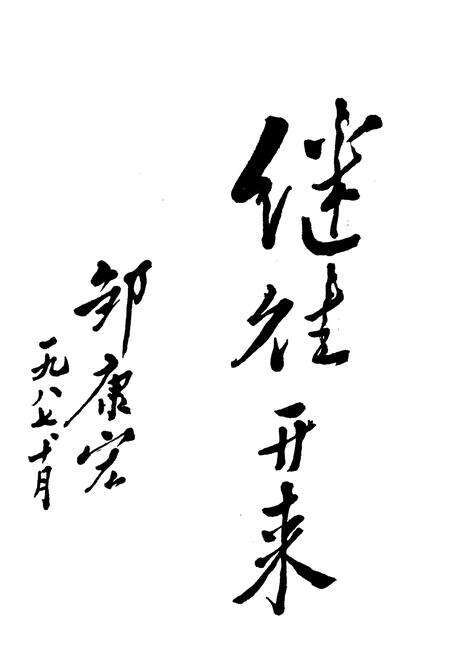 继往开来
邹康宏
一九八七、十月